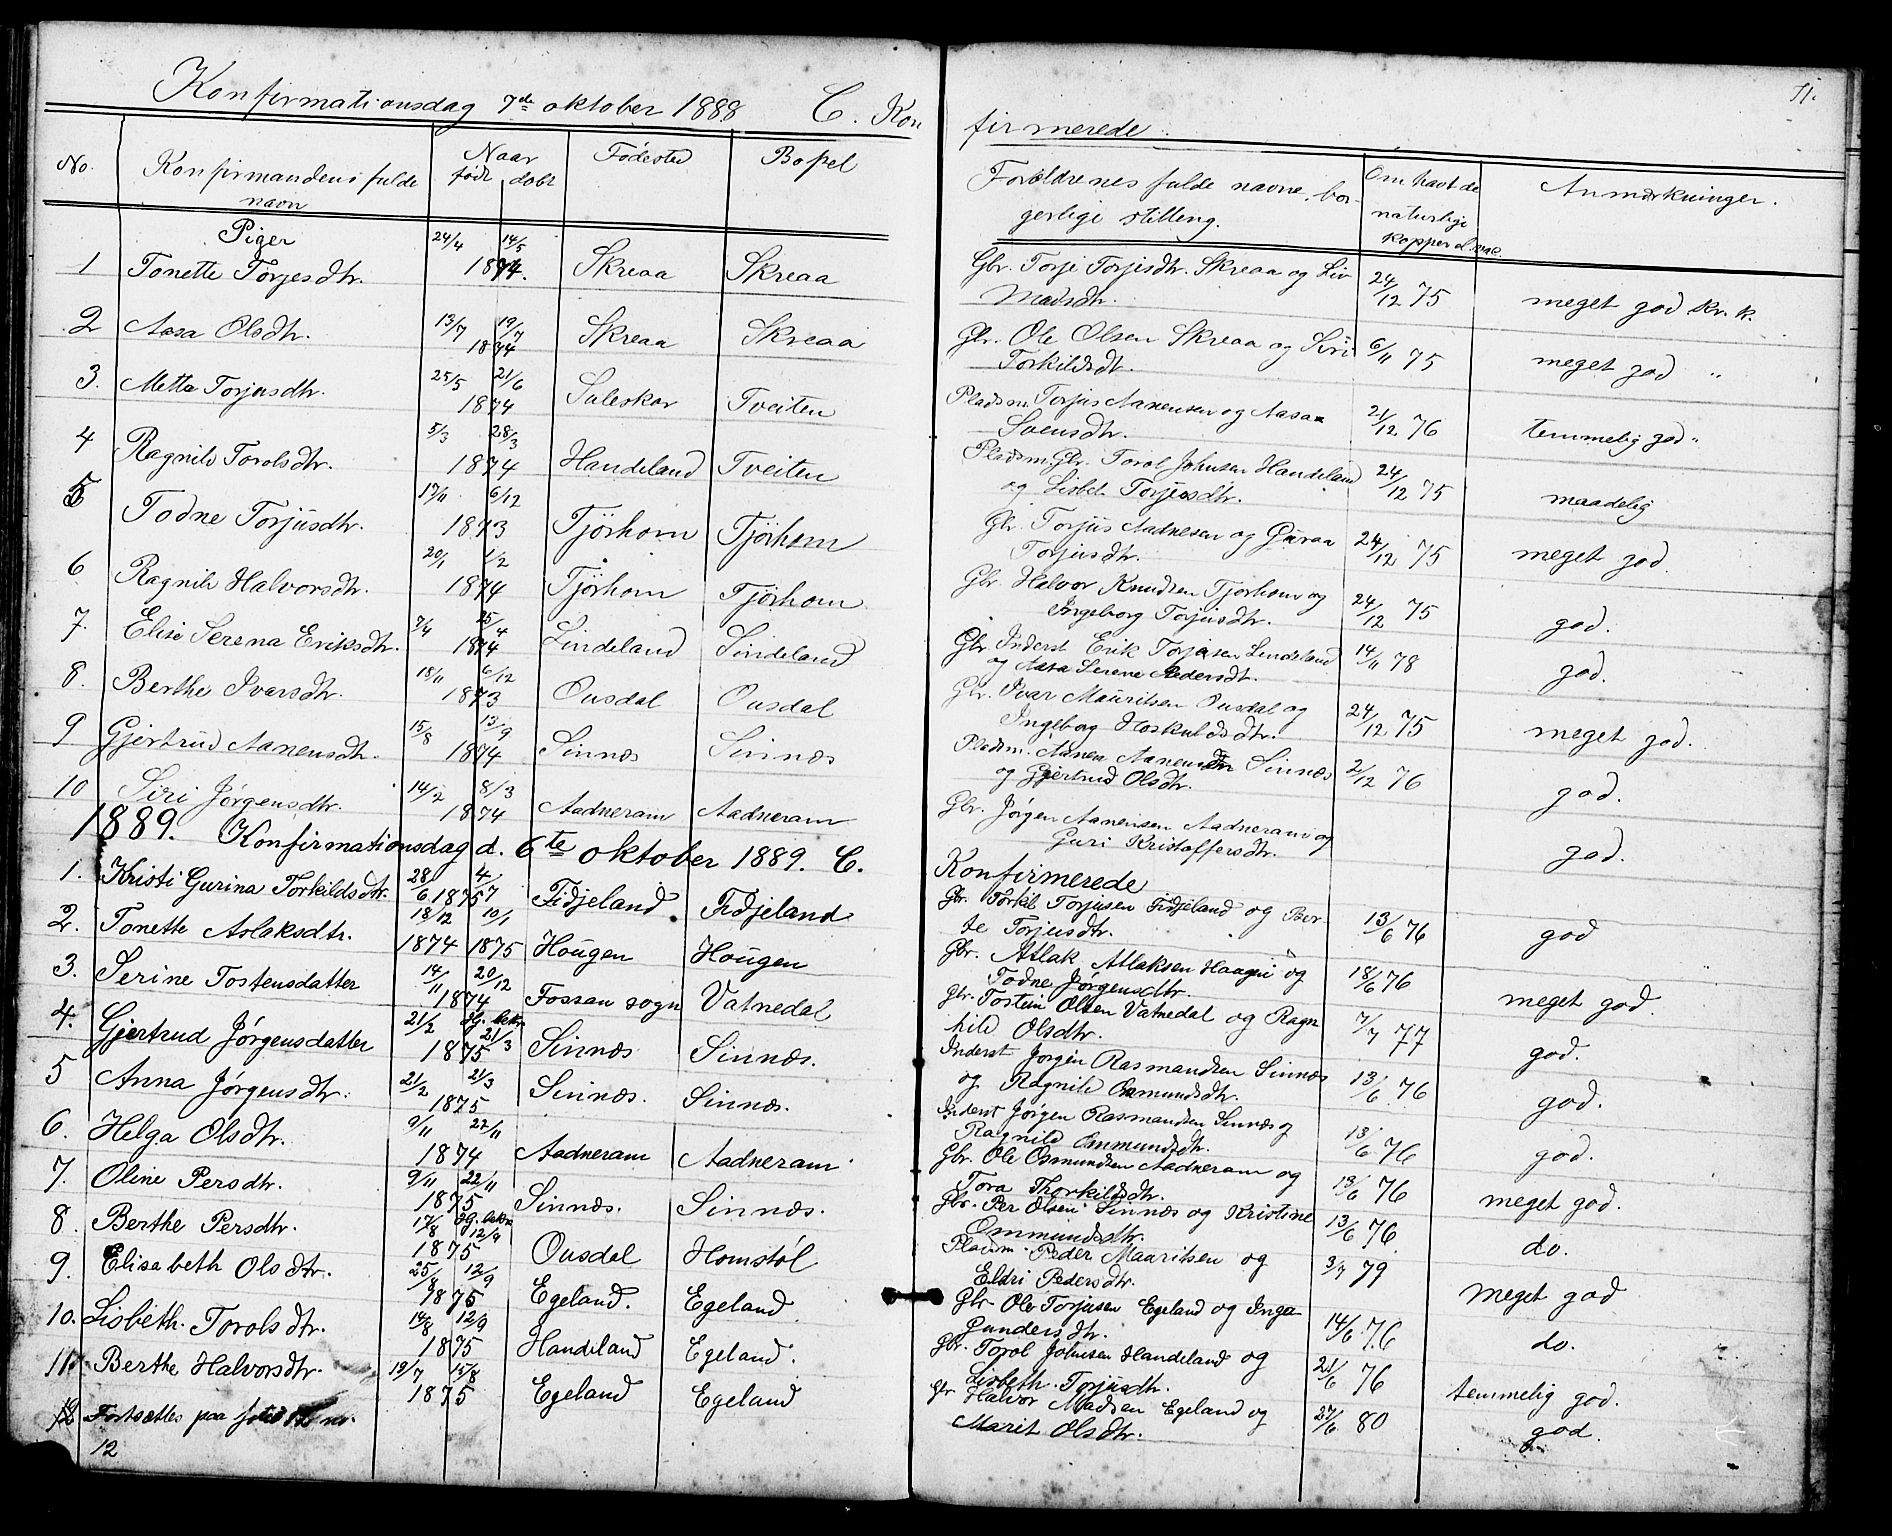 11.
Konfirmationsdag 7de oktober 1888 C. Kon
firmerede
No. Konfirmandens fulde navn Naar født døbt Fødested Bopel
Forældrenes fulde navne, borgerlige stilling. Om havt de naturlige kopper el. vac. Anmærkninger.
Piger
1 Tonette Torjesdtr. 24/4 14/5 1874. Skreaa Skreaa
Gbr. Torje Torjisdtr. Skreaa og Liv
Madsdtr. 24/12 75 meget god kr. k.
2 Aasa Olsdtr. 13/7 19/7 1874 Skreaa Skreaa
Gbr. Ole Olsen Skreaa og Siri
Torkildsdt. 6/11 75 meget god "
3. Metta Torjusdtr. 25/5 21/6 1874 Suleskar Tveiten
Pladsm. Torjus Aanensen og Aasa
Svensdtr. 21/12 76 temmelig god "
4 Ragnild Torolsdtr. 5/3 28/3 1874 Handeland Tveiten
Pladsm. Gbr. Torol Johnsen Handeland
og Lisbet Torjusdtr. 24/12 75 maadelig
5 Todne Torjusdtr. 17/11 6/12 1873 Tjörhom Tjörhom
Gbr. Torjus Aadnesen og Guraa
Torjusdtr. 24/12 75 meget god.
6 Ragnild Halvorsdtr. 20/1 1/2 1874 Tjörhom Tjörhom
Gbr. Halvor Knudsen Tjorhom og
Ingeborg Torjusdtr. 24/12 75 god.
7. Elise Serena Eriksdtr. 7/4 25/4 1874 Lindeland Lindeland
Gbr Inderst Erik Torjusen Lindeland
og Aasa Serene Pedersdt. 14/11 78 god.
8. Berthe Ivarsdtr. 18/11 6/12 1873 Ousdal Ousdal
Gbr. Ivar Mauritsen Ousdal og
Ingeborg Hoskuldsdtr. 24/12 75 meget god.
9 Gjertrud Aanensdt. 15/8 13/9 1874 Sinnæs Sinnæs
Pladsm. Aanen Aanensen Sinnæs
og Gjertrud Olsdtr. 2/12 76 god.
10 Siri Jørgensdtr. 14/2 8/3 1874 Aadneram Aadneram
Gbr. Jørgen Aanensen Aadneram og
Guri Kristoffersdtr. god.
1889. Konfirmationsdag d. 6te oktober 1889. C.
Konfirmerede
1. Kristi Gurina Torkildsdtr. 28/6 4/7 1875 Fidjeland Fidjeland
Gbr. Torkel Torjusen Fidjeland og Ber
te Torjusdtr. 13/6 76 god
2. Tonette Aslaksdtr. 18/12 1874 10/1 1875 Hougen Hougen
Gbr. Atlak Atlaksen Haagen og
Todne Jørgensdtr. 18/6 76 meget god.
3. Serine Tostensdatter 14/11 20/12 1874 Fossan sogn Vatnedal
Gbr. Tostein Olsen Vatnedal og Ragn
hild Olsdtr. 7/7 77 god.
4. Gjertrud Jørgensdatter 21/2 Hj. bekr. 21/3 1875 Sinnæs Sinnæs.
Inderst Jorgen Rasmundsen Sinnæs
og Ragnild Omundsdtr. 13/6 76 god.
5 Anna Jørgensdtr. 21/2 21/3 1875 Sinnæs. Sinnæs.
Inderst Jørgen Rasmundsen Sinnæs og
Ragnild Ommundsdtr. 13/6 76 god.
6. Helga Olsdtr. 9/11 22/11 1874 Aadneram Aadneram
Gbr. Ole Osmundsen Aadneram og
Tora Thorkildsdtr. 13/6 76 meget god.
7. Oline Persdtr. 9/11 22/11 1875 Sinnæs. Sinnæs.
Gbr. Per Olsen Sinnæs og Kristine
Ommundsdtr. 13/6 76. do.
8. Berthe Persdtr. 17/8 Hj. bekr. 12/9 1875 Ousdal Homstøl
Pladsm. Peder Mauritsen og
Eldri Pedersdtr. 3/7 79 meget god
9. Elisabeth Olsdtr. 25/8 12/9 1875 Egeland. Egeland.
Gbr. Ole Torjusen Egeland og Inga
Gundersdtr. 14/6 76 do.
10. Lisbeth. Torolsdtr. 14/8 12/9 1875 Handeland Egeland.
Gbr. Torol Johnsen Handeland og
Lisbeth. Torjusdtr. 21/6 76 temmelig god.
11. Berthe Halvorsdtr. 19/7 15/8 1875 Egeland Egeland
Gbr Halvor Madsen Egeland og
Marit Olsdtr. 27/6 80 god.
12 Fortsættes paa folio 12 nr.
12